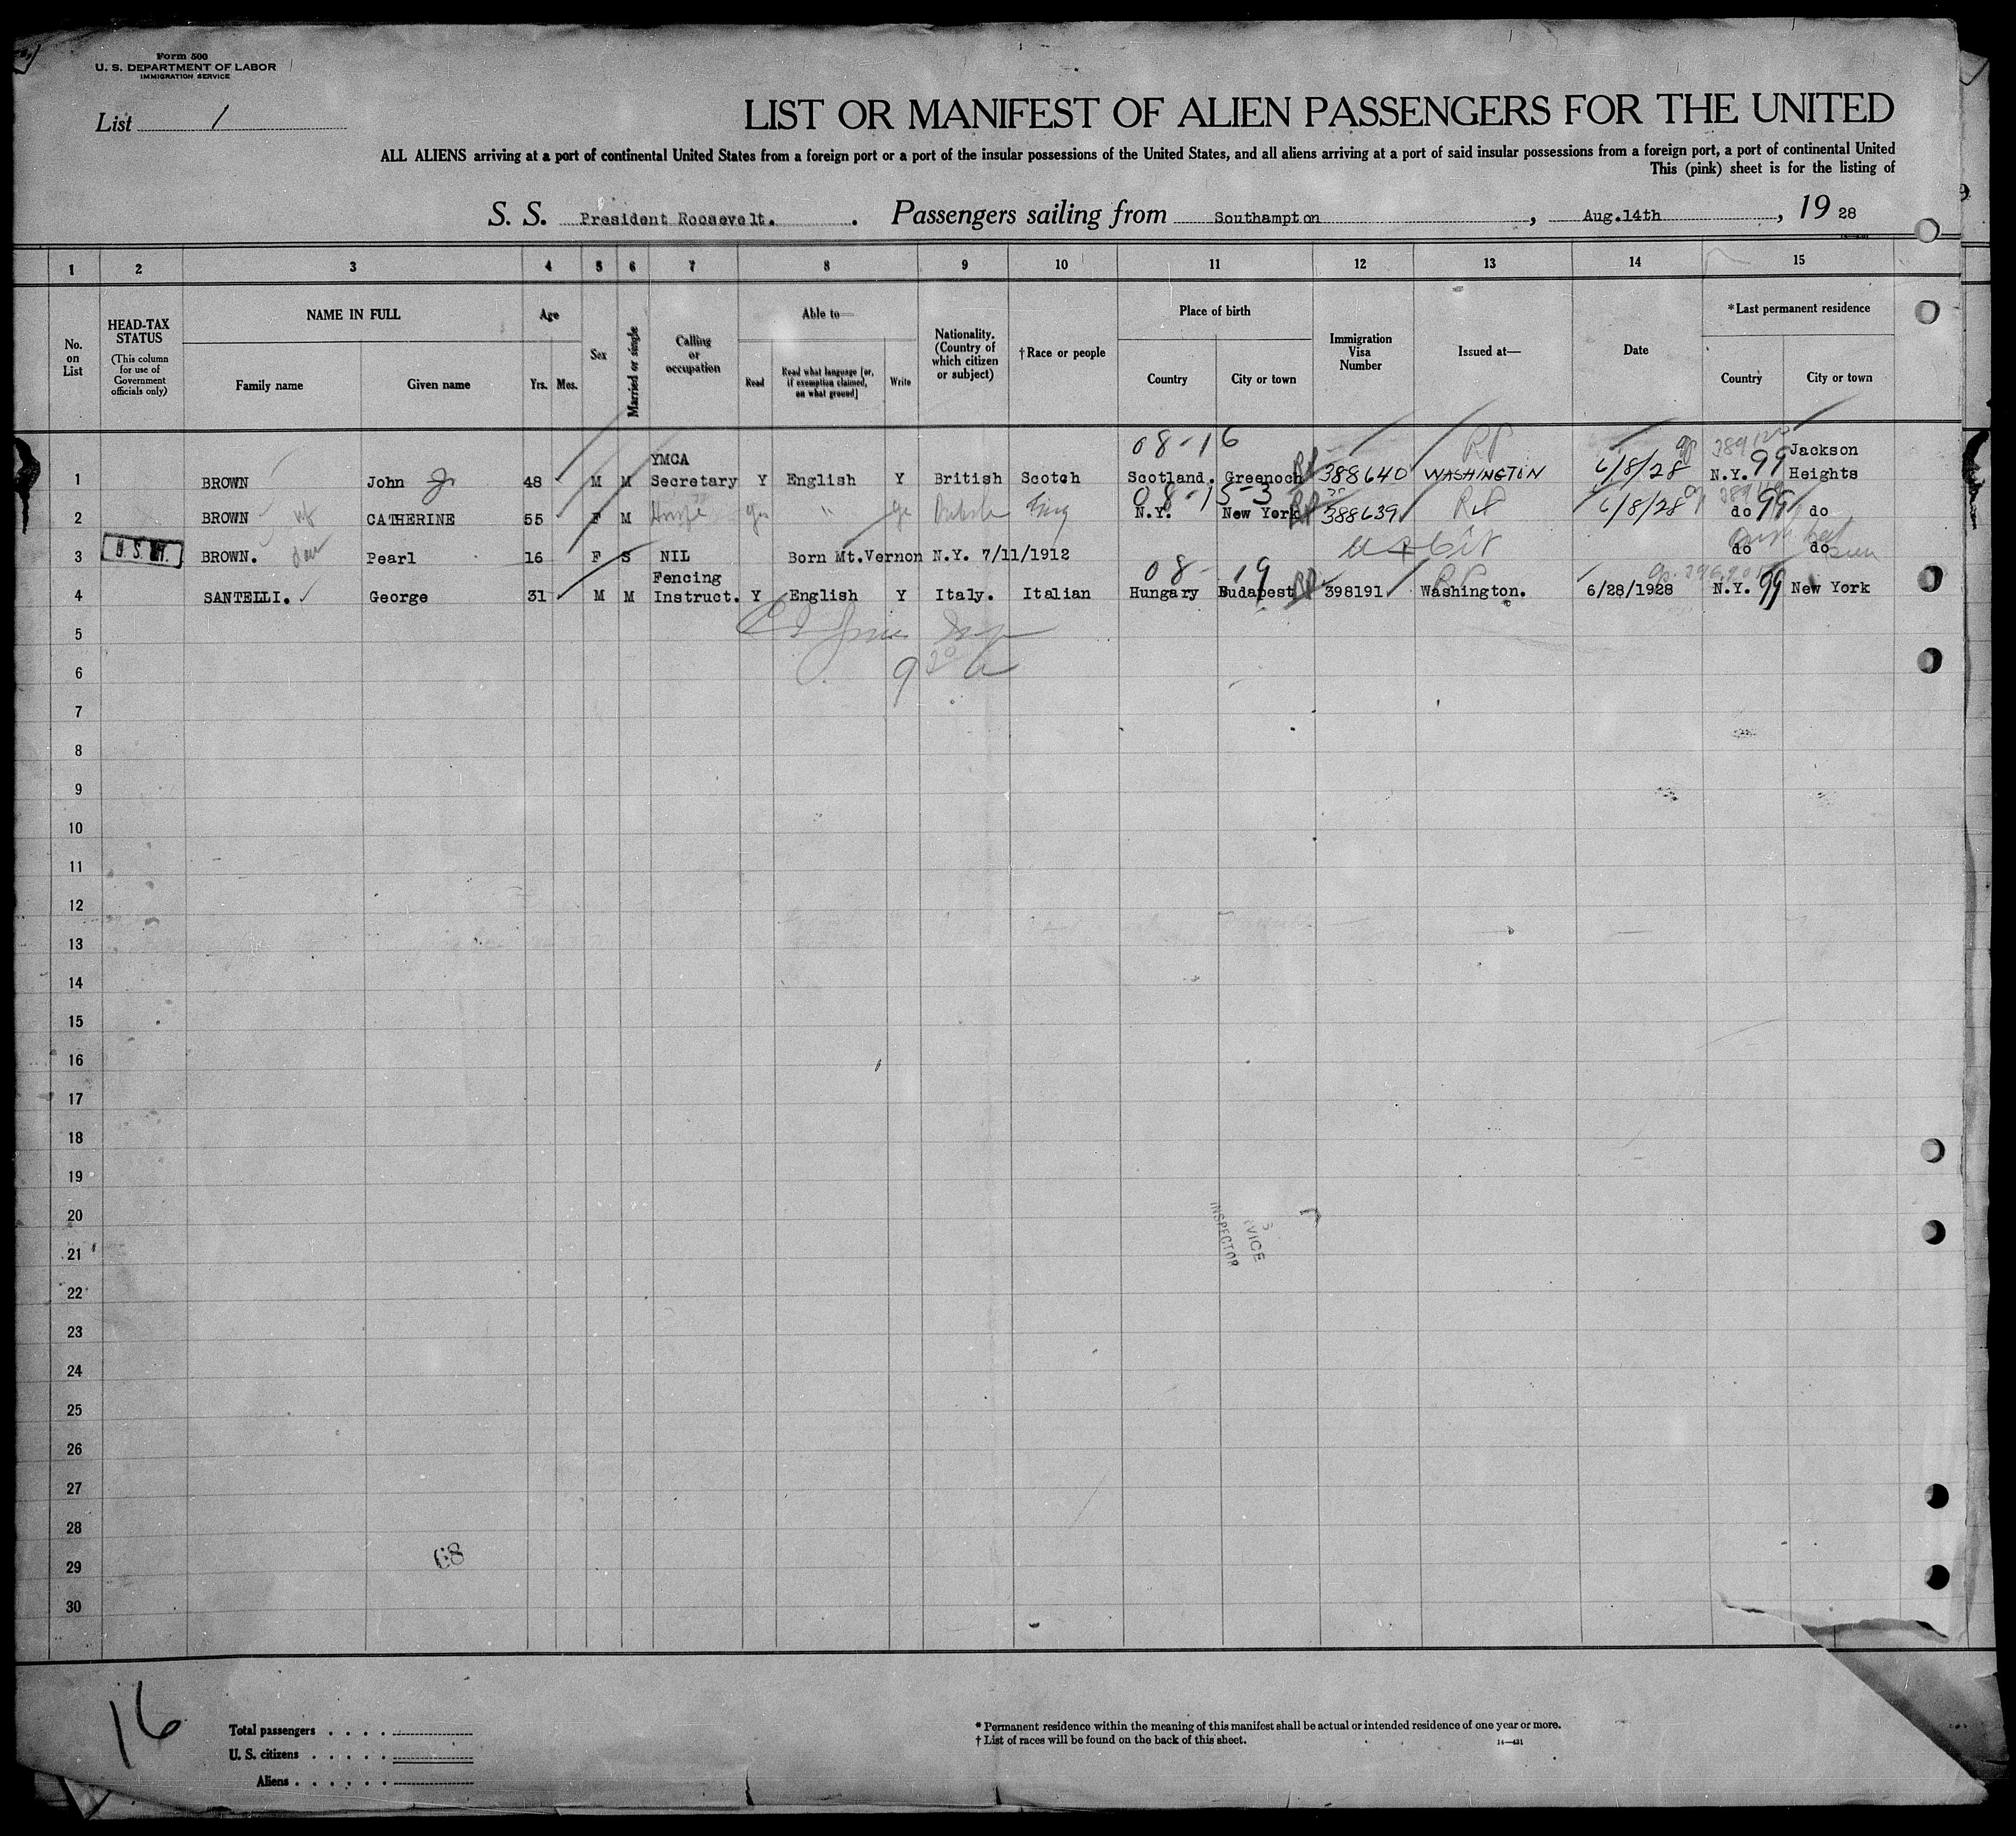 Form 500
U. S. DEPARTMENT OF LABOR
IMMIGRATION SERVICE
List 1
LIST OR MANIFEST OF ALIEN PASSENGERS FOR THE UNITED
ALL ALIENS arriving at a port of continental United States from a foreign port or a port of the insular possessions of the United States, and all aliens arriving at a port of said insular possessions from a foreign port, a port of continental United
This (pink) sheet is for the listing of
S. S. President Roosevelt. . Passengers sailing from Southampton , Aug.14th , 19 28
1 2 3 4 5 6 7 8 9 10 11 12 13 14 15
No. on List
HEAD-TAX STATUS
(This column for use of Government officials only)
NAME IN FULL
Family name Given name
Age
Yrs. Mos.
Sex
Married or single
Calling or occupation
Able to—
Read
Read what language [or, if exemption claimed, on what ground]
Write
Nationality. (Country of which citizen or subject)
†Race or people
Place of birth
Country City or town
Immigration Visa Number
Issued at—
Date
*Last permanent residence
Country City or town
08-16 RP
1 BROWN John 48 M M YMCA Secretary Y English Y British Scotch Scotland. Greenoch 388640 WASHINGTON 6/8/28 N.Y. 99 Jackson Heights
08-15-3
2 BROWN wf CATHERINE 55 F M yes " N.Y. New York 388639 6/8/28 do 99 do
3 U.S.
BROWN. dau Pearl 16 F S NIL Born Mt.Vernon N.Y. 7/11/1912 do do
08-19 RP
4 SANTELLI. George 31 M M Fencing Instruct. Y English Y Italy. Italian Hungary Budapest 398191 Washington. 6/28/1928 N.Y. 99 New York
5
6
7
8
9
10
11
12
13
14
15
16
17
18
19
20
21
22
23
24
25
26
27
28
29
30
INSPECTOR
VICE
68
16
Total passengers . . . .
U. S. citizens . . . . .
Aliens . . . . . .
* Permanent residence within the meaning of this manifest shall be actual or intended residence of one year or more.
† List of races will be found on the back of this sheet.
14—431